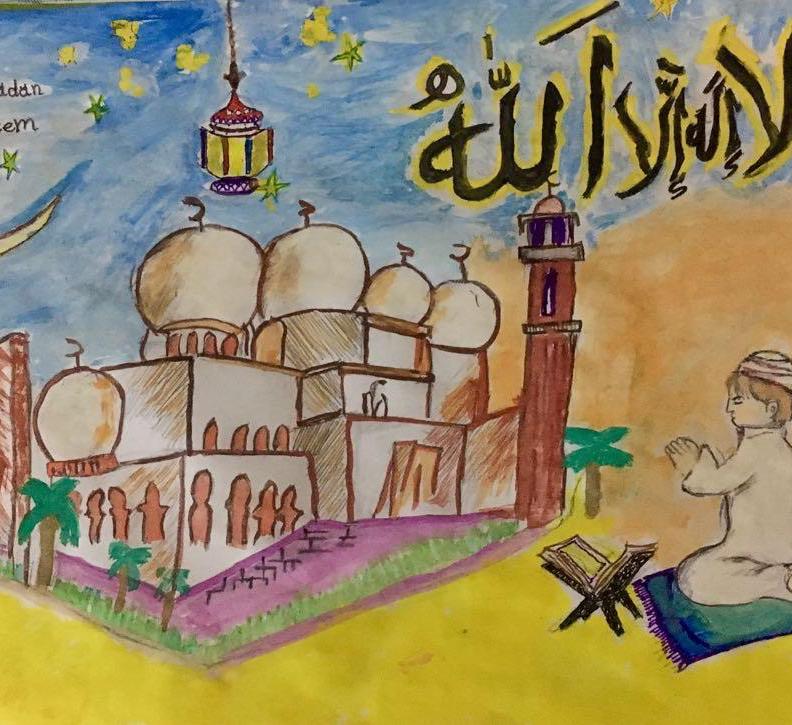 adan
eem
لا إله إلا الله